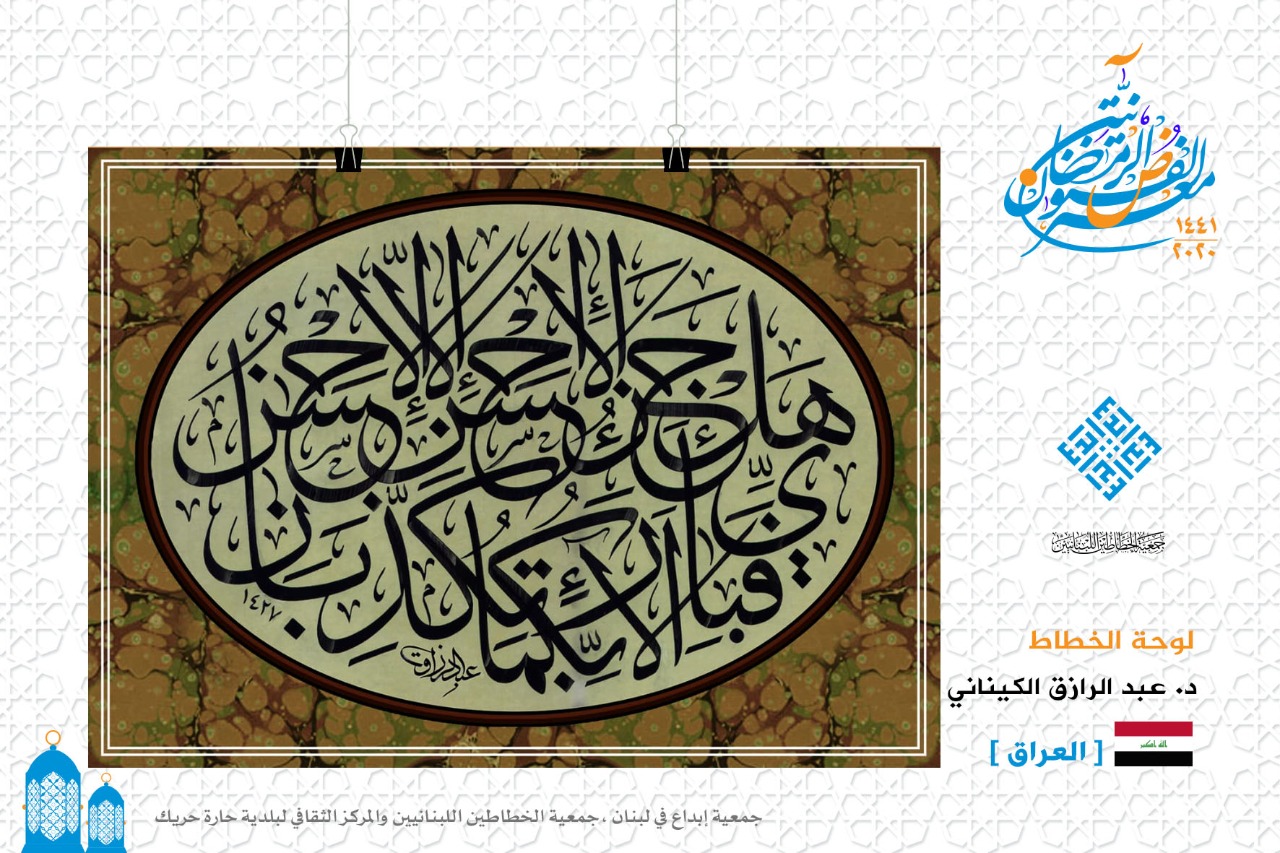 معرض الفنون الرمضانية
١٤٤١
٢٠٢٠
هل جزاء الإحسان إلا الإحسان
فبأي آلاء ربكما تكذبان
١٤٢٧
عبدالرزاق
جمعية الخطاطين اللبنانيين
لوحة الخطاط
د. عبد الرازق الكيناني
الله اكبر
[ العراق ]
جمعية إبداع في لبنان ، جمعية الخطاطين اللبنانيين والمركز الثقافي لبلدية حارة حريك